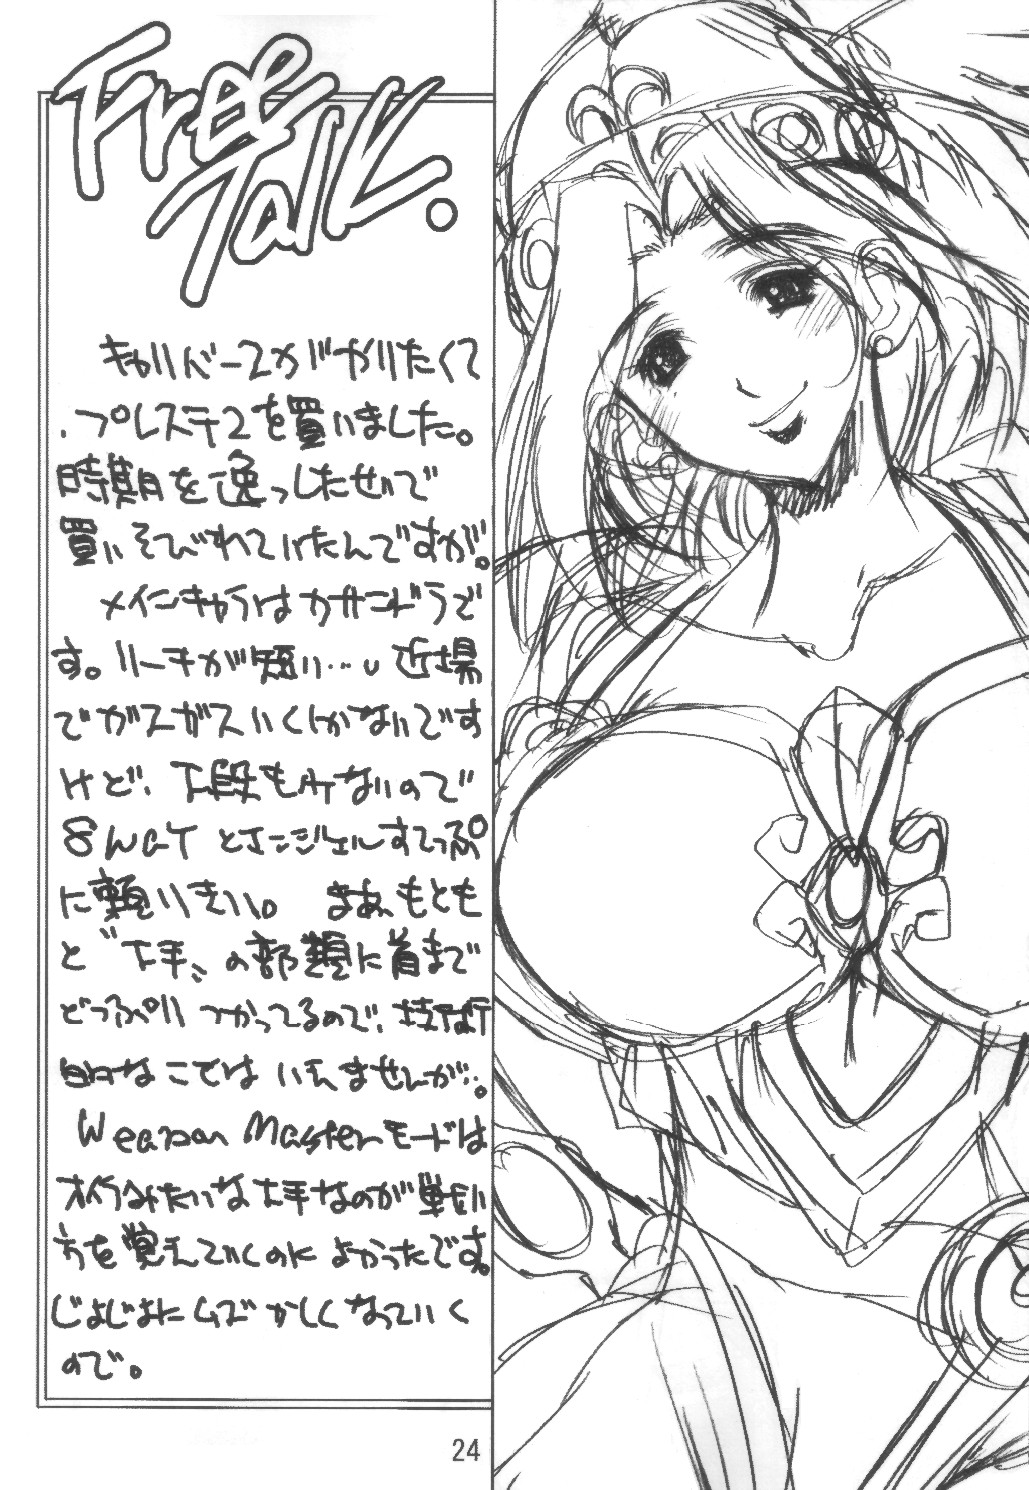 Free
Talk.
キャリバー2がやりたくて
、プレステ2を買いました。
時期を逸っしたせいで
買いそびれていたんですが。
メインキャラはカサンドラで
す。リーチが短い…し 近場
でガスガスいくしかないです
けど、下段もんないので
8WAY とエンジェルすてっぷ
に頼りきり。 まあ、もとも
と〝下手〟の部類に首まで
どっぷり つかってるので、技術
的なことでは いえませんが…。
Weapon Masterモードは
オイラみたいな下手なのが戦い
方を覚えていくのに よかったです。
じょじょにムズかしくなっていく
ので。
24